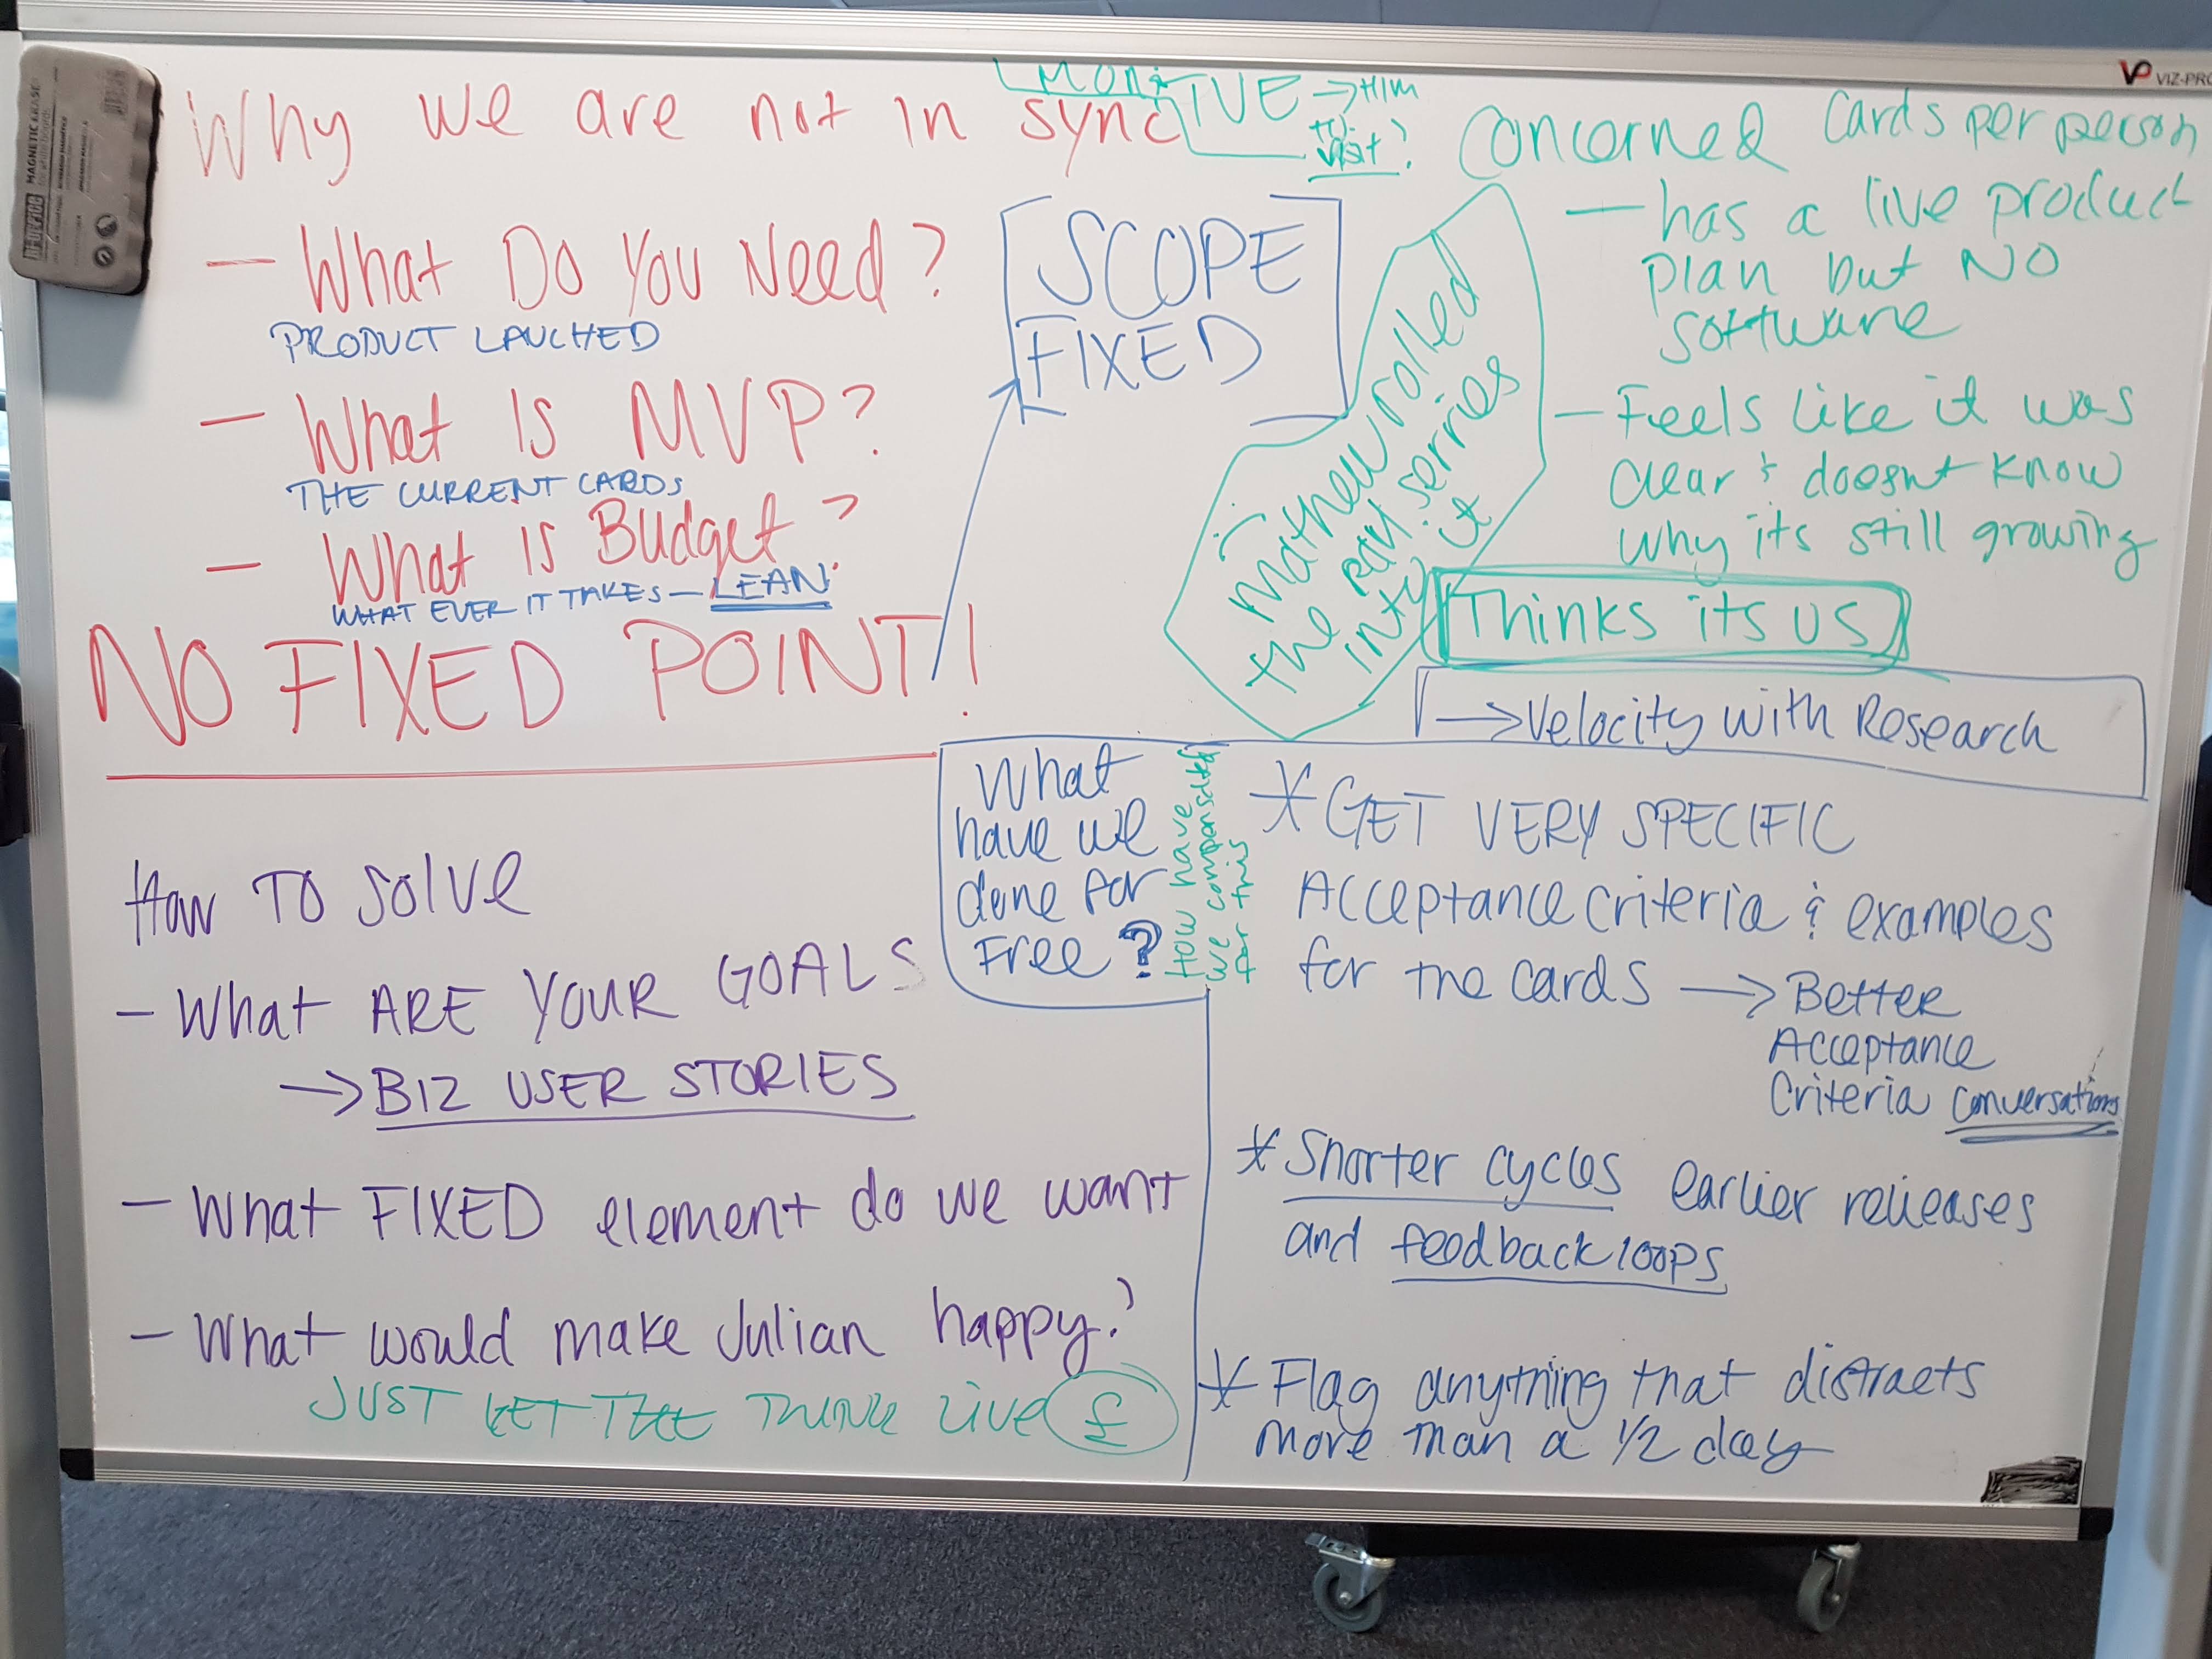 VIZ-PRO
MAGNETIC ERASER
Why we are not in sync
— What Do You Need?
PRODUCT LAUCHED
— What Is MVP?
THE CURRENT CARDS
— What Is Budget?
WHAT EVER IT TAKES — LEAN
NO FIXED POINT!
TUE → HIM
to
visit?
SCOPE
FIXED
Concerned Cards per person
— has a live product
plan but NO
software
— Feels like it was
clear & doesnt know
why its still growing
Thinks its US
Mathew rolled
the pay serries
into it
→ Velocity with Research
How TO SOLVE
— What ARE YOUR GOALS
→ BIZ USER STORIES
— What FIXED element do we want
— What would make Julian happy?
JUST GET THE THING LIVE £
What
have we
done for
Free?
How have
we compensated
for this
* GET VERY SPECIFIC
Acceptance Criteria & examples
for the cards → Better
Acceptance
Criteria conversations
* Shorter cycles earlier relieases
and feedback loops
* Flag anything that distracts
more than a 1/2 day